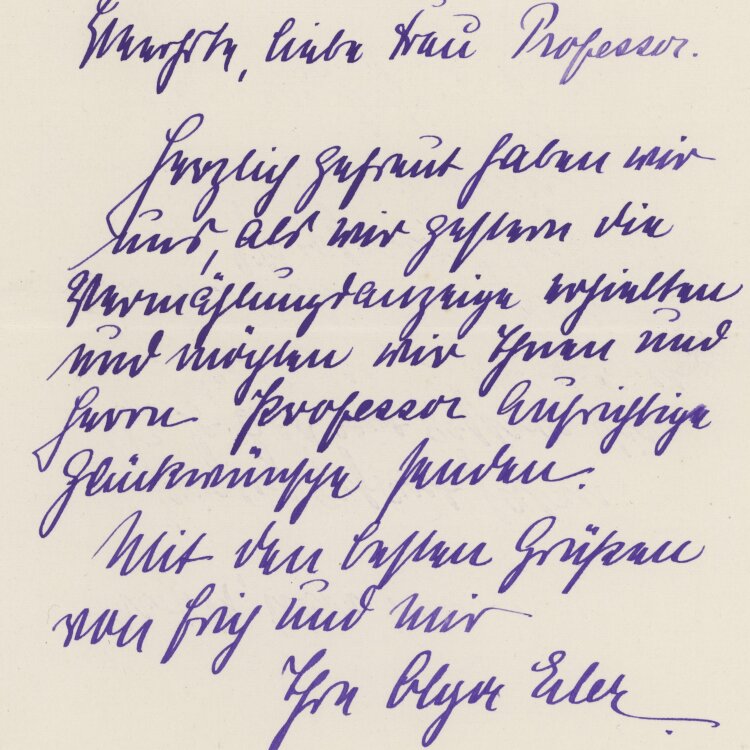 Verehrte, liebe Frau Professor.
Herzlich gefreut haben wir
uns, als wir gestern die
Vermählungsanzeige erhielten
und möchten wir Ihnen und
Herrn Professor aufrichtige
Glückwünsche senden.
Mit den besten Grüßen
von und mir
Ihre Olga